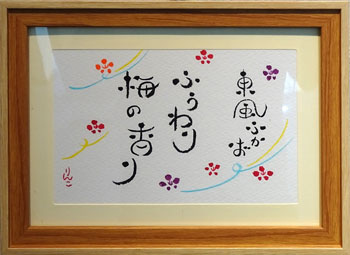 東風ふかば
ふうわり
梅の香り
りんこ